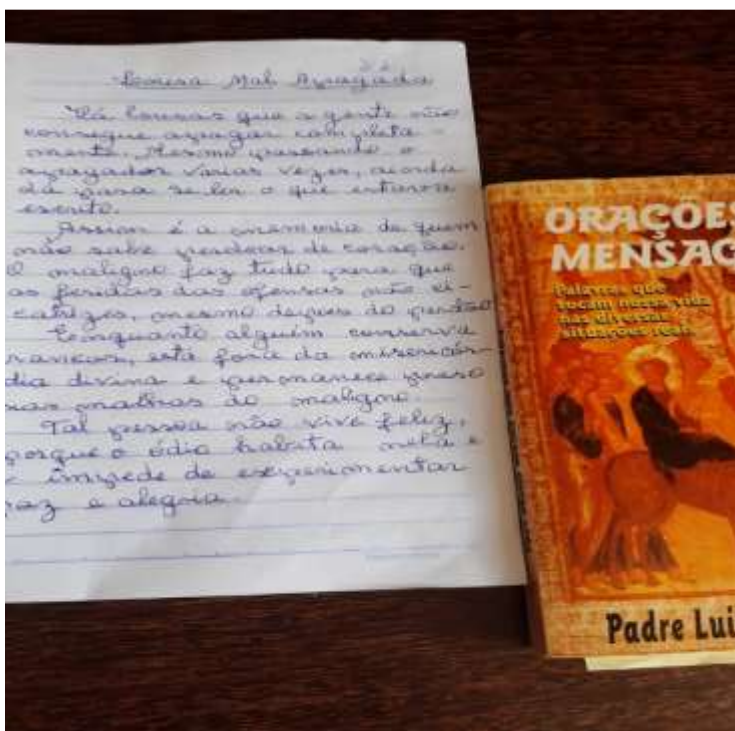 Lousa Mal Apagada
Há lousas que a gente não
consegue apagar completa-
mente. Mesmo passando o
apagador várias vezes, ainda
dá para se ler o que estava
escrito.
Assim é a memória de quem
não sabe perdoar de coração.
O maligno faz tudo para que
as feridas das ofensas não ci-
catrizes, mesmo depois do perdão
Enquanto alguém conserva
rancor, está fora da misericór-
dia divina e permanece preso
nas malhas do maligno
Tal pessoa não vive feliz,
porque o ódio habita nela e
impede de experimentar
paz e alegria.
ORAÇÕES
MENSAG
Palavras que
tocam nossa vida
nas diversas
situações reais
Padre Lui